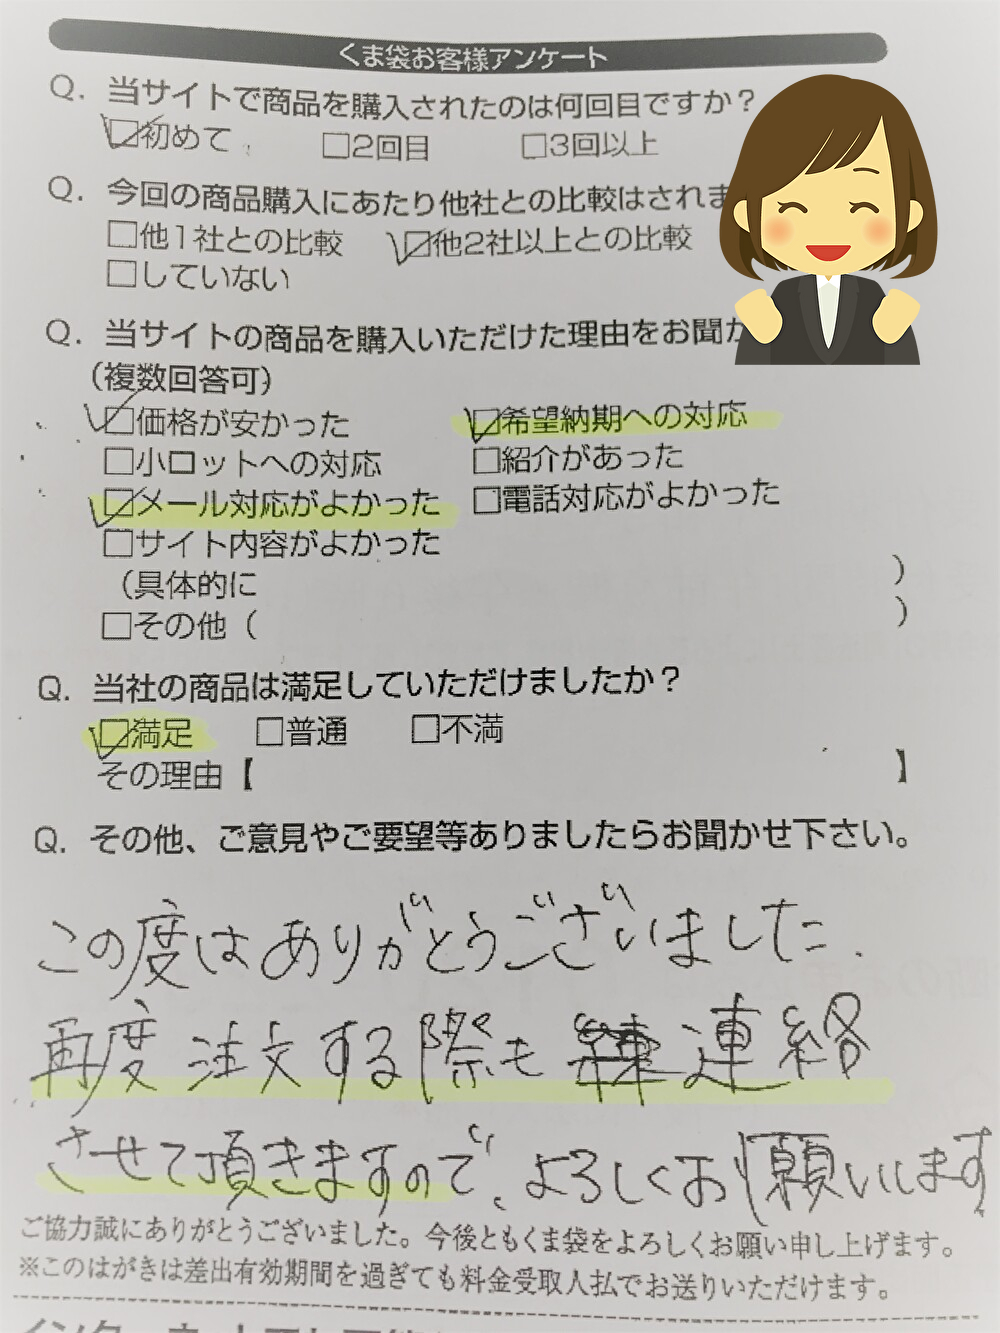 くま袋お客様アンケート
Q. 当サイトで商品を購入されたのは何回目ですか？
☑初めて □2回目 □3回以上
Q. 今回の商品購入にあたり他社との比較はされま
□他1社との比較 ☑他2社以上との比較
□していない
Q. 当サイトの商品を購入いただけた理由をお聞か
（複数回答可）
☑価格が安かった ☑希望納期への対応
□小ロットへの対応 □紹介があった
☑メール対応がよかった □電話対応がよかった
□サイト内容がよかった
（具体的に ）
□その他（ ）
Q. 当社の商品は満足していただけましたか？
☑満足 □普通 □不満
その理由【 】
Q. その他、ご意見やご要望等ありましたらお聞かせ下さい。
この度はありがとうございました.
再度注文する際も連絡
させて頂きますので、よろしくお願いします
ご協力誠にありがとうございました。今後ともくま袋をよろしくお願い申し上げます。
※このはがきは差出有効期間を過ぎても料金受取人払でお送りいただけます。